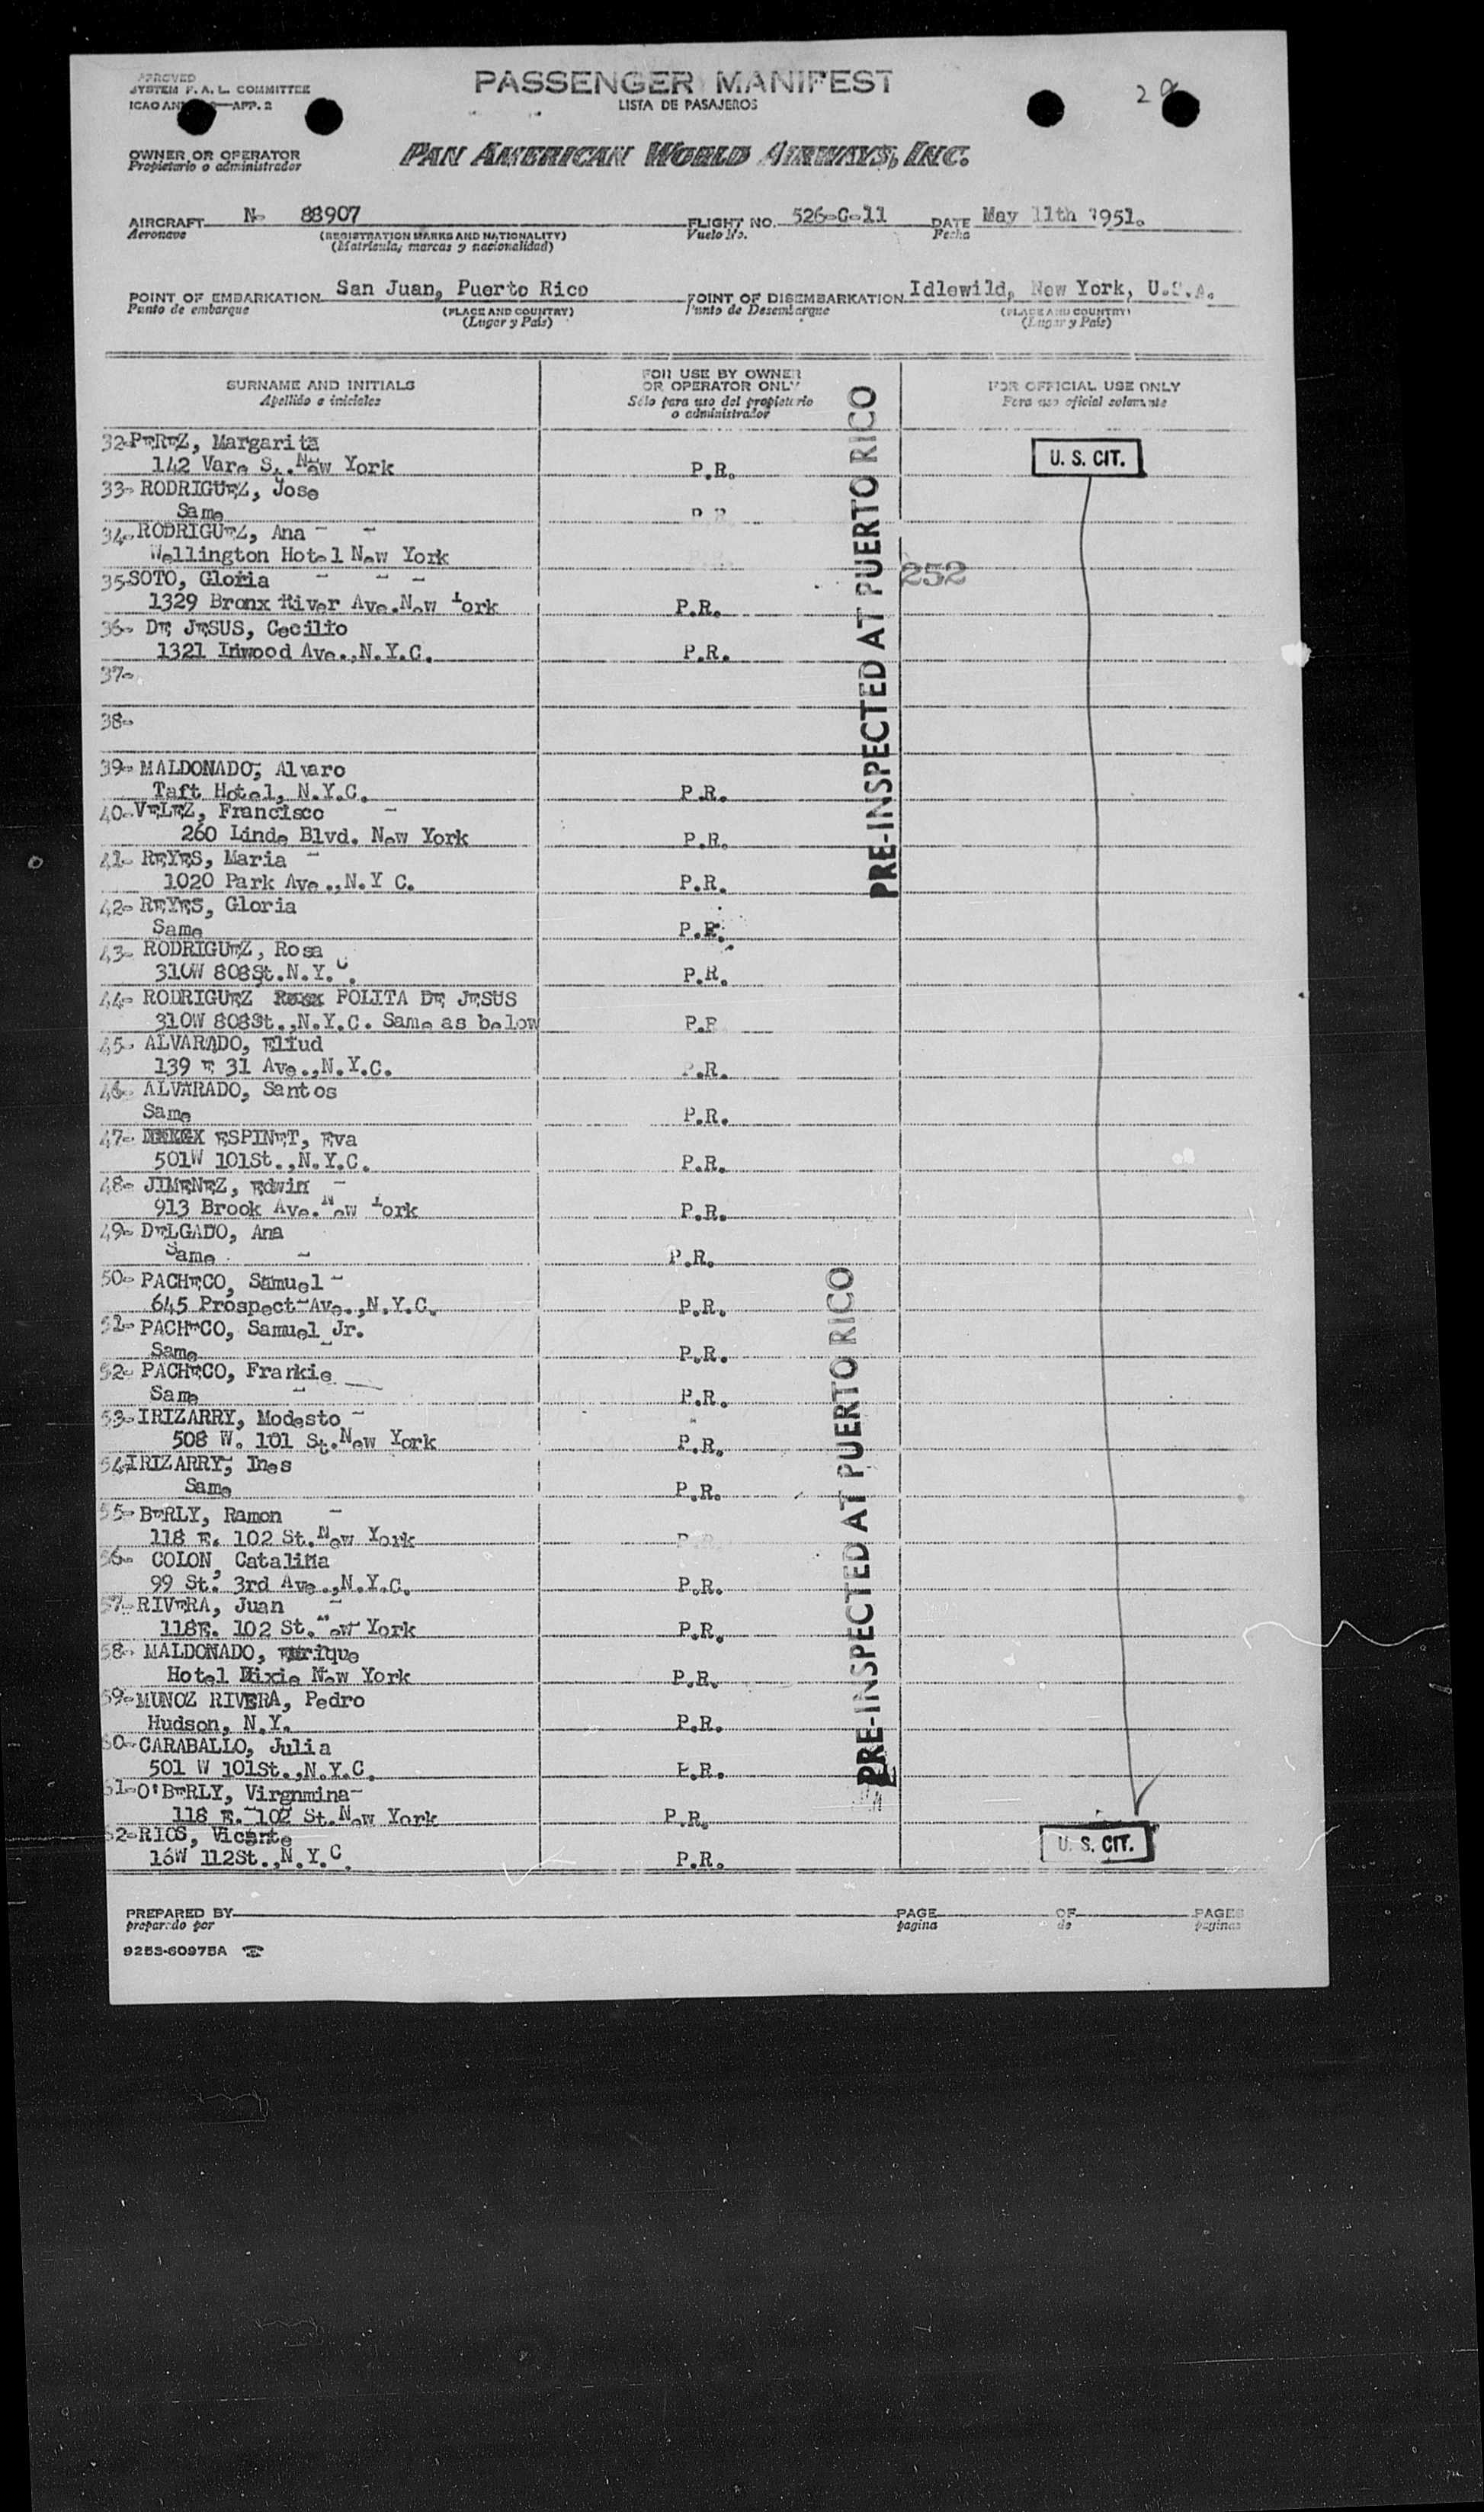 APPROVED
SYSTEM F. A. L. COMMITTEE
ICAO AN APP. 2
PASSENGER MANIFEST
LISTA DE PASAJEROS
OWNER OR OPERATOR
Propietario o administrador
PAN AMERICAN WORLD AIRWAYS, INC.
AIRCRAFT N- 88907 FLIGHT NO. 526-C-11 DATE May 11th 1951.
Aeronave (REGISTRATION MARKS AND NATIONALITY) Vuelo No. Fecha
(Matricula, marcas y nacionalidad)
POINT OF EMBARKATION San Juan, Puerto Rico POINT OF DISEMBARKATION Idlewild, New York, U.S.A.
Punto de embarque (PLACE AND COUNTRY) Punto de Desembarque (PLACE AND COUNTRY)
(Lugar y País) (Lugar y País)
SURNAME AND INITIALS
Apellido e iniciales
FOR USE BY OWNER
OR OPERATOR ONLY
Sólo para uso del propietario
o administrador
FOR OFFICIAL USE ONLY
Para uso oficial solamente
32-PEREZ, Margarita
142 Vare S. New York P.R.
U. S. CIT.
33- RODRIGUEZ, Jose
Same P.R.
34- RODRIGUEZ, Ana - -
Wellington Hotel New York P.R.
35-SOTO, Gloria - - -
252
1329 Bronx River Ave.New York P.R.
36- DE JESUS, Cecilio
1321 Inwood Ave.,N.Y.C. P.R.
37-
38-
39- MALDONADO, Alvaro
Taft Hotel, N.Y.C. P.R.
40-VELEZ, Francisco -
260 Linde Blvd. New York P.R.
41- REYES, Maria -
1020 Park Ave.,N.Y C. P.R.
42- REYES, Gloria
Same P.R.
43- RODRIGUEZ, Rosa
310W 808St.N.Y.C. P.R.
44- RODRIGUEZ POLITA DE JESUS
310W 808St.,N.Y.C. Same as below P.R
45- ALVARADO, Eliud
139 E 31 Ave.,N.Y.C. P.R.
46- ALVARADO, Santos
Same P.R.
47- ESPINET, Eva
501W 101St.,N.Y.C. P.R.
48- JIMENEZ, Edwin -
913 Brook Ave.New York P.R.
49- DELGADO, Ana
Same - P.R.
50- PACHECO, Samuel -
645 Prospect-Ave.,N.Y.C. P.R.
51- PACHECO, Samuel Jr.
Same - P.R.
52- PACHECO, Frankie
Same - P.R.
53-IRIZARRY, Modesto -
508 W. 101 St.New York P.R.
54IRIZARRY, Ines
Same P.R.
55- BERLY, Ramon -
118 E. 102 St.New York P.R.
56- COLON, Catalina
99 St. 3rd Ave.,N.Y.C. P.R.
57-RIVERA, Juan -
118E. 102 St. New York P.R.
58- MALDONADO, Enrique
Hotel Dixie New York P.R.
59-MUNOZ RIVERA, Pedro
Hudson, N.Y. P.R.
60-CARABALLO, Julia
501 W 101St.,N.Y.C. P.R.
61-O'BERLY, Virgnmina-
118 E.-102 St.New York P.R.
62-RIOS, Vicente
16W 112St.,N.Y.C. P.R.
U. S. CIT.
PRE-INSPECTED AT PUERTO RICO
PRE-INSPECTED AT PUERTO RICO
PREPARED BY PAGE OF PAGES
preparado por pagina de paginas
9253-60975A